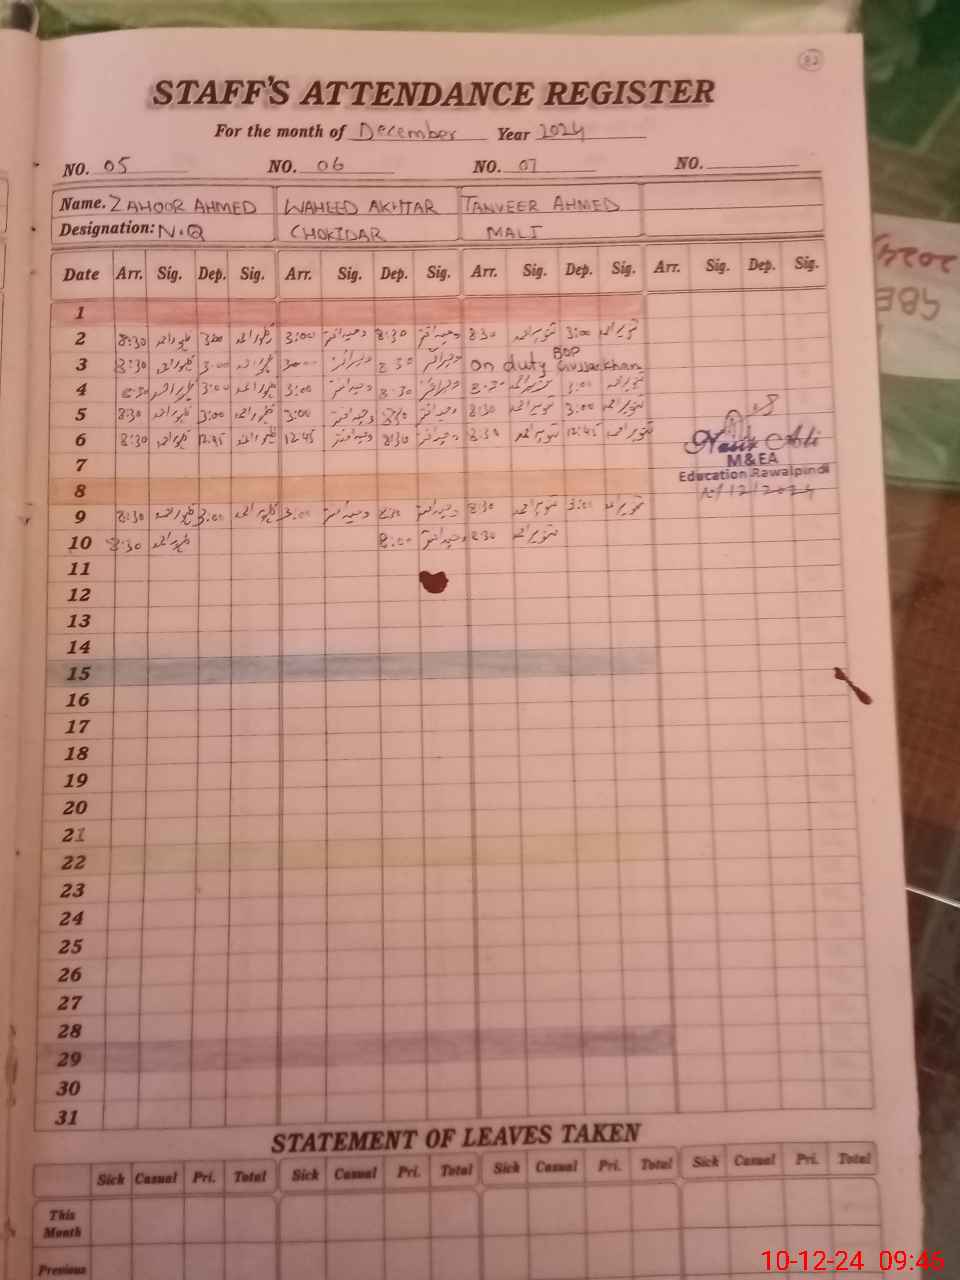 82
STAFF'S ATTENDANCE REGISTER
For the month of December Year 2024
NO. 05 NO. 06 NO. 07 NO.
Name. ZAHOOR AHMED WAHEED AKHTAR TANVEER AHMED
Designation: N.Q CHOKIDAR MALI
Date Arr. Sig. Dep. Sig. Arr. Sig. Dep. Sig. Arr. Sig. Dep. Sig. Arr. Sig. Dep. Sig.
1
2 8:30 ظہور احمد 3:00 ظہور احمد 3:00 وحید اختر 8:30 وحید اختر 8:30 تنویر احمد 3:00 تنویر احمد
3 8:30 ظہور احمد 3:00 ظہور احمد وحید اختر 8:30 وحید اختر On duty BOP
4 8:30 ظہور احمد 3:00 ظہور احمد 3:00 وحید اختر 8:30 وحید اختر 8:30 تنویر احمد 3:00 تنویر احمد
5 8:30 ظہور احمد 3:00 ظہور احمد 3:00 وحید اختر 8:30 وحید اختر 8:30 تنویر احمد 3:00 تنویر احمد
6 8:30 ظہور احمد 12:45 ظہور احمد 12:45 وحید اختر 8:30 وحید اختر 8:30 تنویر احمد 12:45 تنویر احمد
Nasir Ali
M&EA
Education Rawalpindi
10/12/2024
7
8
9 8:30 ظہور احمد 3:00 ظہور احمد 3:00 وحید اختر 8:30 وحید اختر 8:30 تنویر احمد 3:00 تنویر احمد
10 8:30 ظہور احمد 8:00 وحید اختر 8:30 تنویر احمد
11
12
13
14
15
16
17
18
19
20
21
22
23
24
25
26
27
28
29
30
31
STATEMENT OF LEAVES TAKEN
Sick Casual Pri. Total Sick Casual Pri. Total Sick Casual Pri. Total Sick Casual Pri. Total
This
Month
Previous
2024
10-12-24 09:46